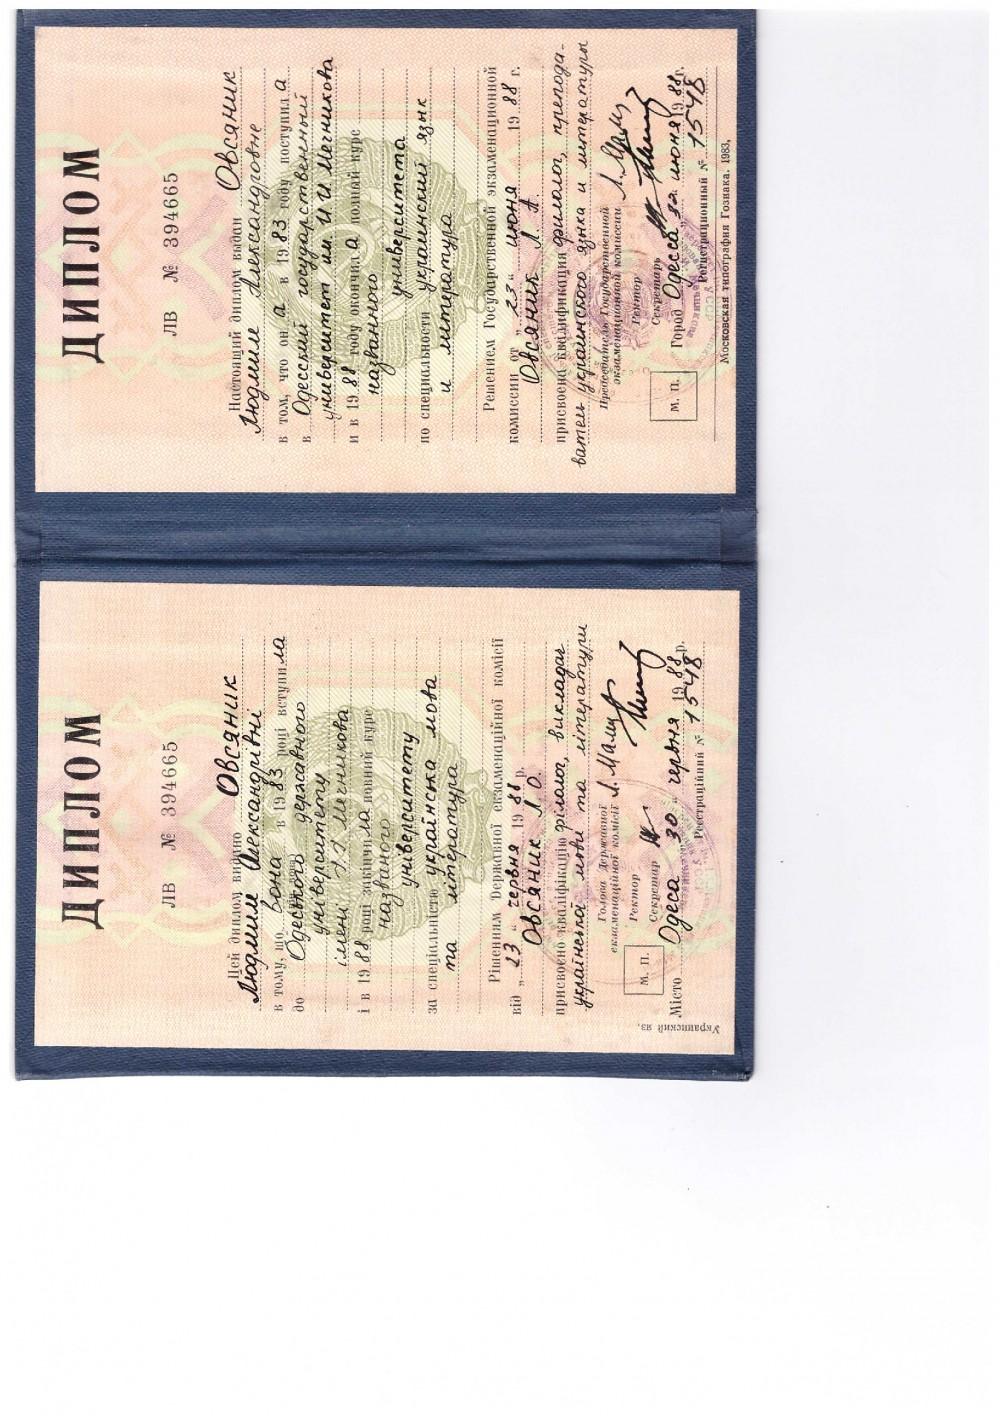 ДИПЛОМ
ЛВ № 394665
Цей диплом видано Овсяник
Людмилі Олександрівні
в тому, що вона в 1983 році вступила
до Одеського державного
університету
імені І.І. Мечникова
і в 1988 році закінчила повний курс
названого
університету
за спеціальністю українська мова
та література
Рішенням Державної екзаменаційної комісії
від „23“ червня 1988 р.
Овсяник Л. О.
присвоєно кваліфікацію філолог, викладач
української мови та літератури
Голова Державної
екзаменаційної комісії
Ректор
Секретар
М. П.
Місто Одеса 30 червня 1988 р.
Реєстраційний № 1548
Украинский яз.
ДИПЛОМ
ЛВ № 394665
Настоящий диплом выдан Овсяник
Людмиле Александровне
в том, что он а в 1983 году поступила
в Одесский государственный
университет им. И И Мечникова
и в 1988 году окончила полный курс
названного
университета
по специальности украинский язык
и литература
Решением Государственной экзаменационной
комиссии от „23“ июня 1988 г.
Овсяник Л. А.
присвоена квалификация филолог, препода-
ватель украинского языка и литературы
Председатель Государственной
экзаменационной комиссии
Ректор
Секретарь
М. П.
Город Одесса 30 июня 1988 г.
Регистрационный № 1548
Московская типография Гознака. 1983.